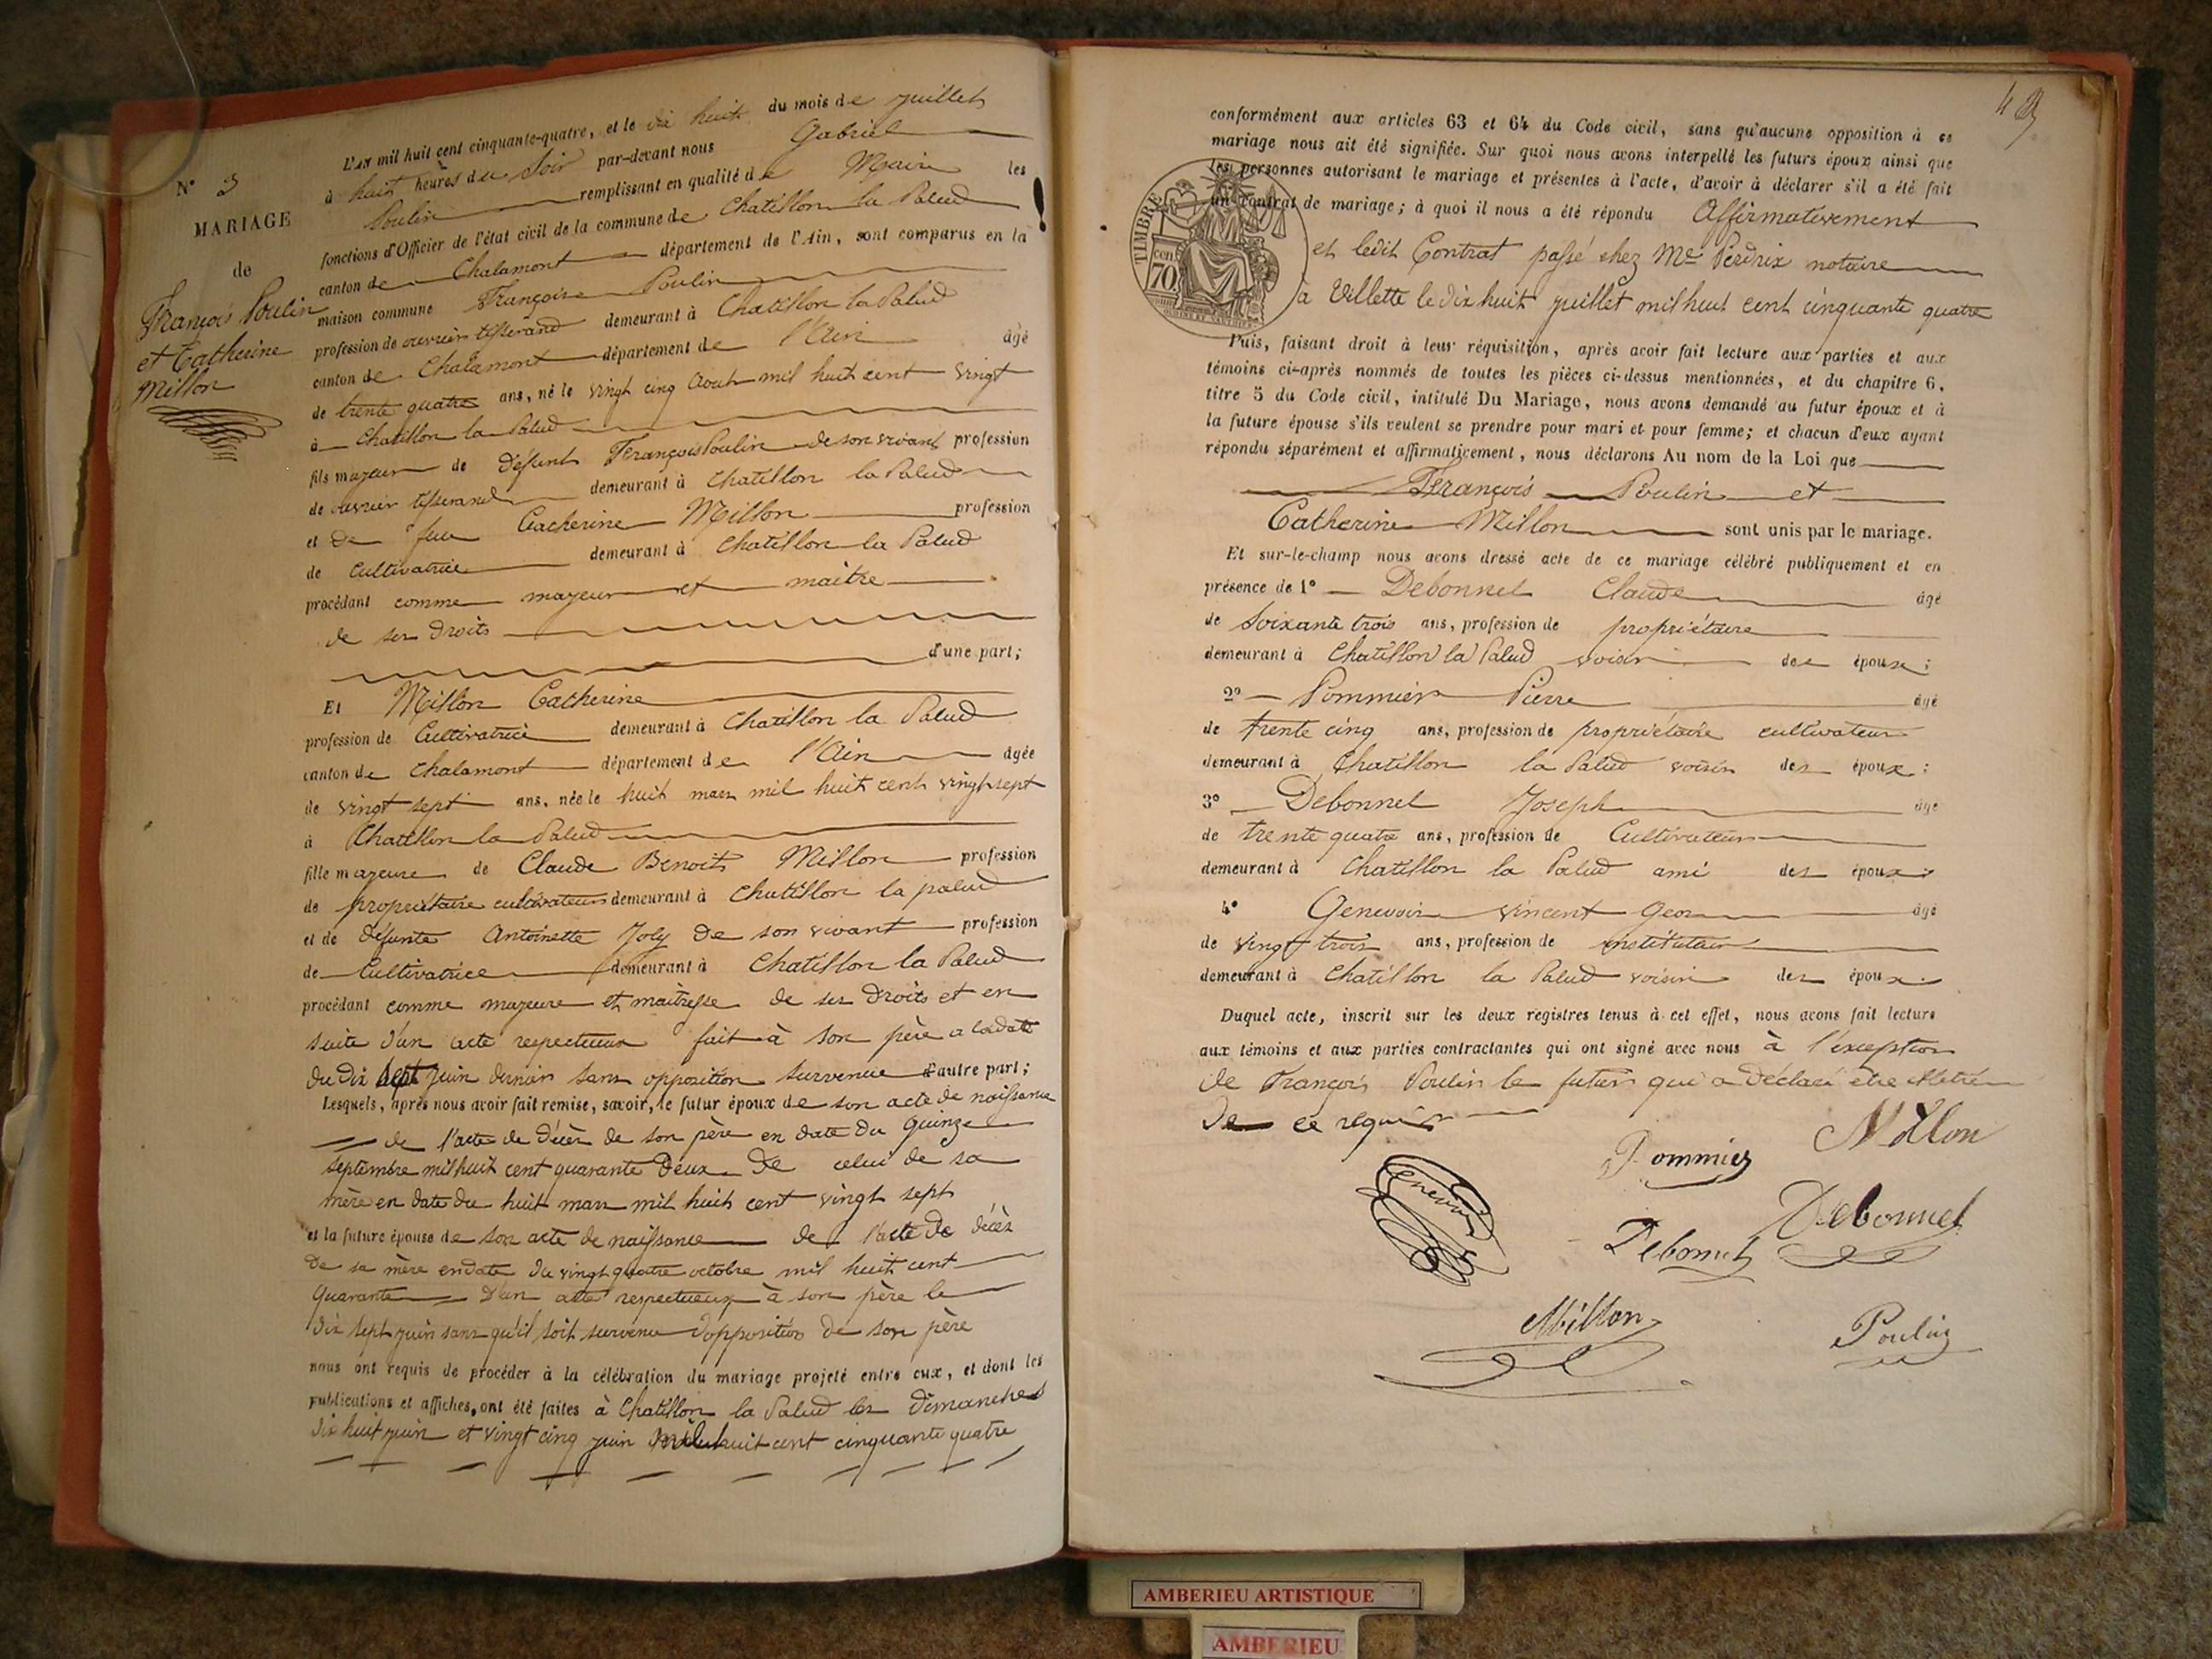 N° 3
MARIAGE
de
François Poulin
et Catherine
Millon
L'an mil huit cent cinquante-quatre, et le dix huit du mois de juillet
à huit heures du Soir par-devant nous Gabriel
Poulin remplissant en qualité de Maire les
fonctions d'Officier de l'état civil de la commune de Chatillon la Palud
canton de Chalamont département de l'Ain, sont comparus en la
maison commune François Poulin
profession de ouvrier tisserand demeurant à Chatillon la Palud
canton de Chalamont département de l'Ain âgé
de trente quatre ans, né le vingt cinq Aout mil huit cent vingt
à Chatillon la Palud
fils majeur de défunt François Poulin de son vivant profession
de ouvrier tisserand demeurant à Chatillon la Palud
et de feu Catherine Millon profession
de cultivatrice demeurant à Chatillon la Palud
procédant comme majeur et maitre
de ses droits
d'une part;
Et Millon Catherine
profession de Cultivatrice demeurant à Chatillon la Palud
canton de Chalamont département de l'Ain âgée
de vingt sept ans, née le huit mars mil huit cent vingt sept
à Chatillon la Palud
fille majeure de Claude Benoit Millon profession
de propriétaire cultivateur demeurant à Chatillon la palud
et de défunte Antoinette Joly de son vivant profession
de Cultivatrice demeurant à Chatillon la Palud
procédant comme majeure et maitresse de ses droits et en
suite d'un acte respectueux fait à son père a la date
du dix sept juin dernier sans opposition survenue d'autre part;
Lesquels, après nous avoir fait remise, savoir, le futur époux de son acte de naissance
de l'acte de décès de son père en date du quinze
septembre mil huit cent quarante deux de celui de sa
mère en date du huit mars mil huit cent vingt sept
et la future épouse de son acte de naissance de l'acte de décès
de sa mère en date du vingt quatre octobre mil huit cent
quarante d'un acte respectueux à son père le
dix sept juin sans qu'il soit survenu d'opposition de son père
nous ont requis de procéder à la célébration du mariage projeté entre eux, et dont les
publications et affiches, ont été faites à Chatillon la Palud les dimanches
dix huit juin et vingt cinq juin mil huit cent cinquante quatre
conformément aux articles 63 et 64 du Code civil, sans qu'aucune opposition à ce
mariage nous ait été signifiée. Sur quoi nous avons interpellé les futurs époux ainsi que
les personnes autorisant le mariage et présentes à l'acte, d'avoir à déclarer s'il a été fait
un contrat de mariage; à quoi il nous a été répondu Affirmativement
TIMBRE
cen
70
et ledit Contrat passé chez Me Perdrix notaire
à Villette le dix huit juillet mil huit cent cinquante quatre
Puis, faisant droit à leur réquisition, après avoir fait lecture aux parties et aux
témoins ci-après nommés de toutes les pièces ci-dessus mentionnées, et du chapitre 6,
titre 5 du Code civil, intitulé Du Mariage, nous avons demandé au futur époux et à
la future épouse s'ils veulent se prendre pour mari et pour femme; et chacun d'eux ayant
répondu séparément et affirmativement, nous déclarons Au nom de la Loi que
François Poulin et
Catherine Millon sont unis par le mariage.
Et sur-le-champ nous avons dressé acte de ce mariage célébré publiquement et en
présence de 1° Debonnel Claude âgé
de soixante trois ans, profession de propriétaire
demeurant à Chatillon la Palud voisin des époux;
2° Pommier Pierre âgé
de trente cinq ans, profession de propriétaire cultivateur
demeurant à Chatillon la Palud voisin des époux;
3° Debonnel Joseph âgé
de trente quatre ans, profession de Cultivateur
demeurant à Chatillon la Palud ami des époux;
4° Vincent âgé
de vingt trois ans, profession de instituteur
demeurant à Chatillon la Palud voisin des époux.
Duquel acte, inscrit sur les deux registres tenus à cet effet, nous avons fait lecture
aux témoins et aux parties contractantes qui ont signé avec nous à l'exception
de François Poulin le futur qui a déclaré être illetré
de ce requis
Millon
Pommier
Debonnel
Debonnel
Millon
Poulin
AMBERIEU ARTISTIQUE
AMBERIEU